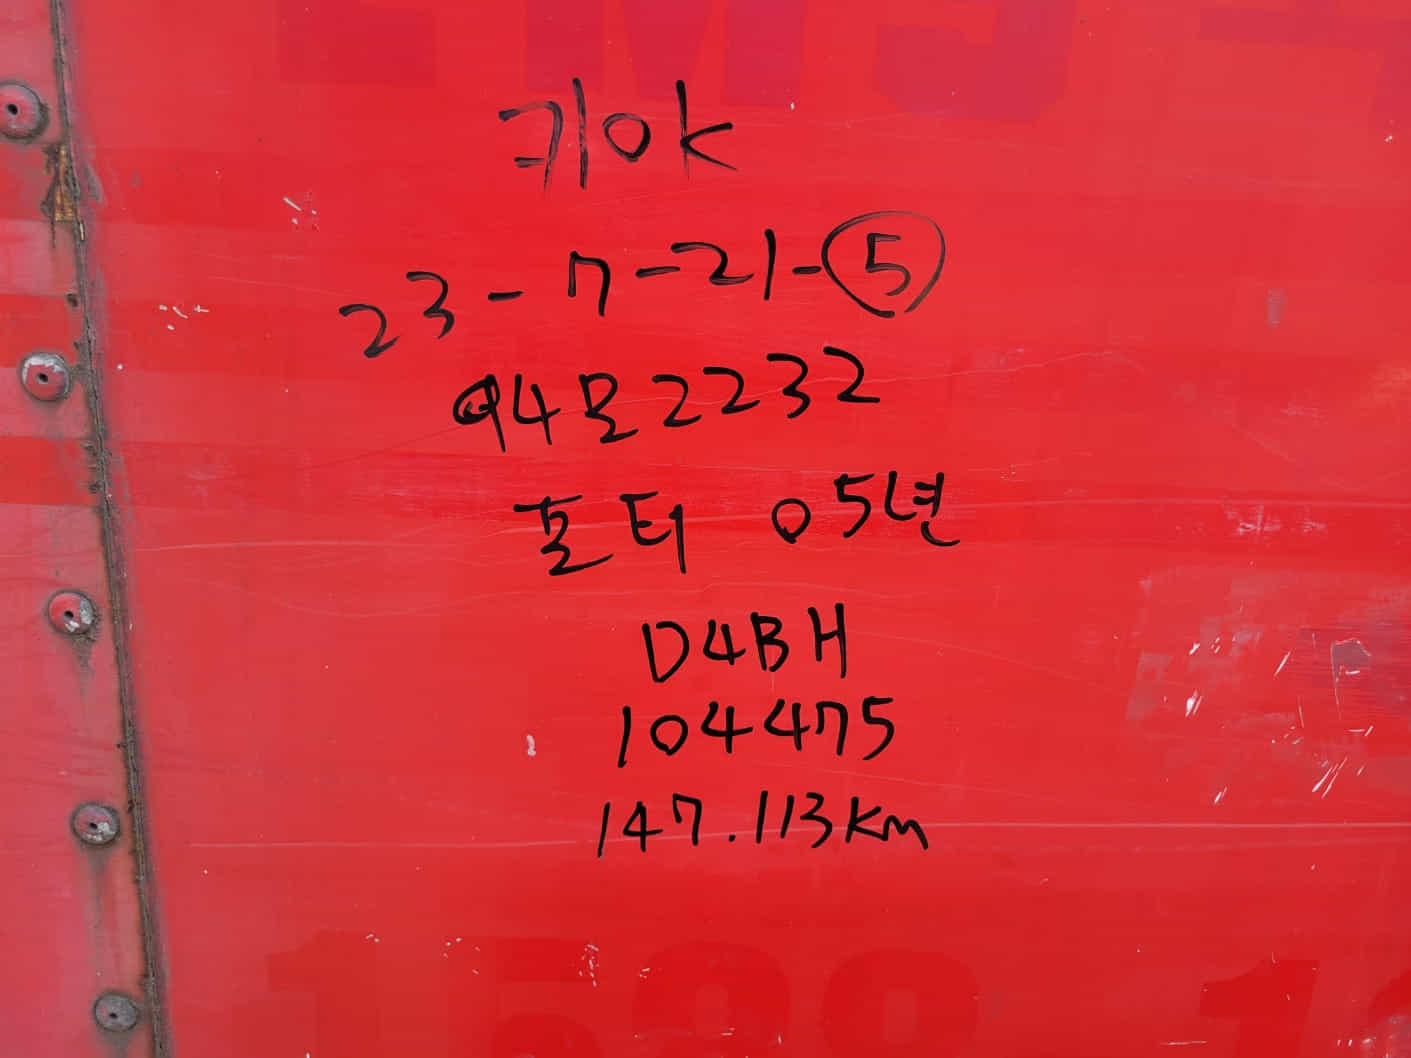 키OK
23-7-21-⑤
94모2232
포터 05년
D4BH
104475
147.113Km